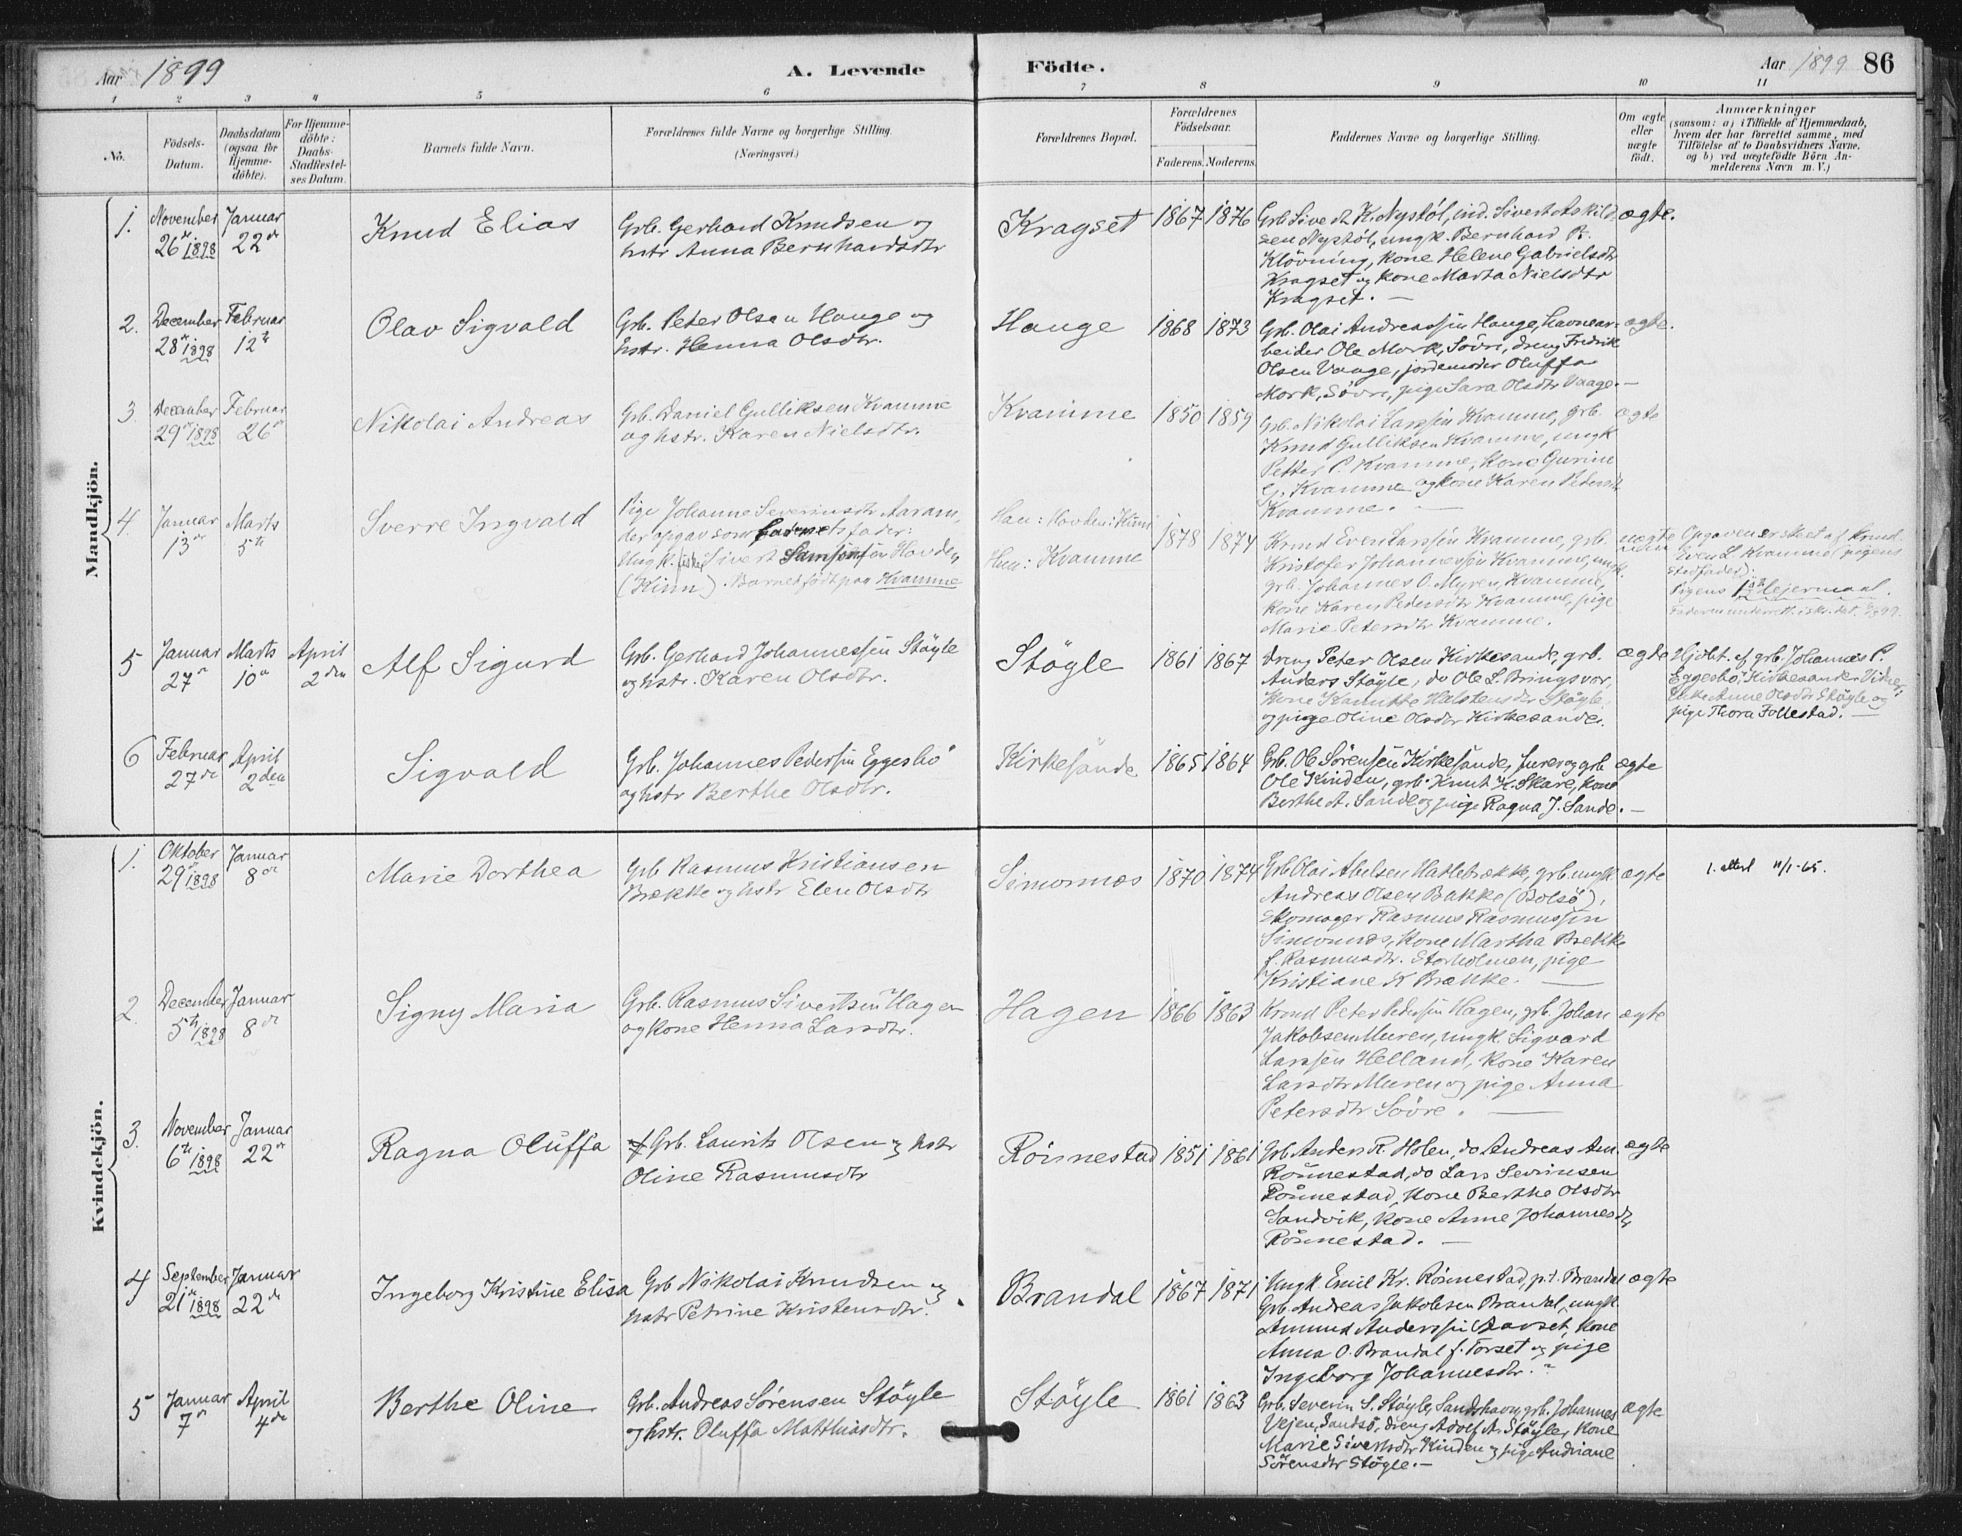 Aar 1899
A. Levende Födte.
Aar 1899 86
1 2 3 4 5 6 7 8 9 10 11
No.
Födsels-
Datum.
Daabsdatum
(ogsaa for
Hjemme-
döbte).
For Hjemme-
döbte:
Daabs-
Stadfæstel-
ses Datum.
Barnets fulde Navn.
Forældrenes fulde Navne og borgerlige Stilling.
(Næringsvei.)
Forældrenes Bopæl.
Forældrenes
Födselsaar.
Faderens. Moderens.
Faddernes Navne og borgerlige Stilling.
Om ægte
eller
uægte
födt.
Anmærkninger
(saasom: a) i Tilfælde af Hjemmedaab,
hvem der har forrettet samme, med
Tilföielse af to Daabsvidners Navne.
og b) ved uægtefödte Börn An-
melderens Navn m. V.)
Mandkjön.
1. November
26de 1898
Januar
22de
Knud Elias
Grb. Gerhard Knudsen og
hstr Anna Bernhardsdtr
Kragset
1867 1876
Grb Sivert K. Nystöl, ind. Sivert Askild-
sen Nystöl, ungk. Bernhard R.
Klövning, kone Helene Gabrielsdtr
Kragset og kone Marta Nielsdtr
Kragset. —
ægte.
2. December
28de 1898
Februar
12te
Olav Sigvald
Grb. Peter Olsen Hauge og
hstr. Henna Olsdtr.
Hauge
1868 1873
Grb. Olai Andreassen Hauge, havnear-
beider Ole Mork, Sövre, dreng Fredrik
Olsen Vaage, jordemoder Oluffa
Mork, Sövre, pige Sara Olsdtr Vaage. —
ægte.
3 December
29de 1898
Februar
26de
Nikolai Andreas
Grb. Daniel Gulliksen Kvamme
og hstr. Karen Nielsdtr.
Kvamme
1850 1859
Grb. Nikolai Larssen Kvamme, grb.
Knud Gulliksen Kvamme, ungk
Petter P. Kvamme, kone Gurine
G. Kvamme og kone Karen Petersdtr
Kvamme. —
ægte
4. Januar
13de
Marts
5te
Sverre Ingvald
Pige Johanne Severinsdtr Aaram,
der opgav som barnets fader:
Ungk. Sivert Samsonsen Hovden,
(Kinn). Barnet födt paa Kvamme
Han: Hovden: Kinn
Hun: Kvamme
1878 1874
Krmd Even Larssen Kvamme, grb.
Kristofer Johannessen Kvamme, ungk.
grb. Johannes O. Myren, Kvamme,
kone Karen Pedersdtr Kvamme, pige
Marie Petersdtr Kvamme.
uægte
Opgaven er skeet af krmd.
Even L. Kvamme (pigens
stedfader).
Pigens 1ste lejermaal.
5 Januar
27de
Marts
10de
April
2den
Alf Sigurd
Grb. Gerhard Johannessen Stöyle
og hstr. Karen Olsdtr.
Stöyle
1861 1867
dreng Peter Olsen Kirkesande, grb.
Anders Stöyle, do Ole L. Bringsvor,
kone Halstensdtr Stöyle
og pige Oline Olsdtr Kirkesande.
ægte
Hjdbt. af grb. Johannes P.
Eggesbö, Kirkesande. Vidner:
enke Anne Olsdtr Stöyle og
pige Thora Follestad. —
6 Februar
27de
April
2den
Sigvald
Grb. Johannes Pedersen Eggesbö
og hstr Berthe Olsdtr.
Kirkesande
1865 1864
Grb. Ole Sörensen Kirkesande, furer og grb
Ole Kinden, grb. Knut K. Skare, kone
Berthe A. Sande og pige Ragna J. Sande. —
ægte
Kvindekjön.
1. Oktober
29de 1898
Januar
8de
Marie Dorthea
Grb Rasmus Kristiansen
Brække og hstr Elen Olsdtr
Simonnæs
1870 1874
Grb Olai Abelsen Hatlebrække, grb. ungk
Andreas Olsen Bakke (Bolsö),
skomager Rasmus Rasmussen
Simonnæs, kone Martha Brekke
f. Rasmusdtr. Storholmen, pige
Kristiane K Brække. —
ægte
1. attest 11/1-65.
2. December
5te 1898
Januar
8de
Signy Maria
Grb. Rasmus Sivertsen Hagen
og kone Henna Larsdtr.
Hagen
1866 1863
Krmd Peter Pedersen Hagen, grb. Johan
Jakobsen Muren, ungk. Sigvard
Larssen Helland, kone Karen
Larsdtr Muren og pige Anna
Petersdtr Sövre. —
ægte
3. November
6te 1898
Januar
22de
Ragna Oluffa
Grb. Laurits Olsen og hstr
Oline Rasmusdtr
Rönnestad
1851 1861
Grb Anders R. Holen, do Andreas Am.
Rönnestad, do Lars Severinsen
Rönnestad, kone Berthe Olsdtr
Sandvik, kone Anne Johannesdtr
Rönnestad. —
ægte
4 September
21de 1898
Januar
22de
Ingeborg Kristine Elisa
Grb Nikolai Knudsen og
hstr Petrine Kristensdtr.
Brandal
1867 1871
Ungk Emil Kr. Rönnestad, p.t. Brandal
Grb. Andreas Jakobsen Brandal, ungk.
Amund Anderssen, kone
Anna O. Brandal f. Torset og pige
Ingeborg Johannesdtr.
ægte
5 Januar
7de
April
4de
Berthe Oline
Grb. Andreas Sörensen Stöyle
og hstr. Oluffa Matthiasdtr.
Stöyle
1861 1863
Grb. Severin S. Stöyle, Sandshavn, grb. Johannes
Vejen, Sandsö, dreng Adolf A. Stöyle, kone
Marie Sivertsdtr Kinden og pige Andriane
Sörensdtr Stöyle. —
ægte